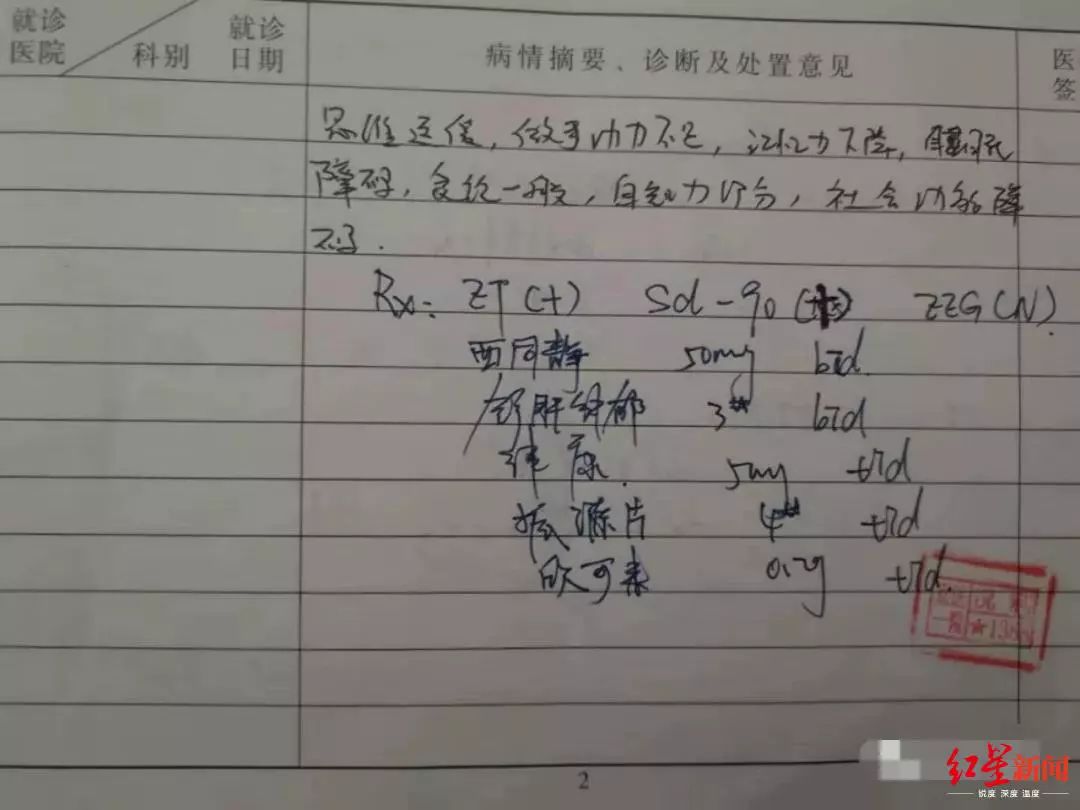 就诊医院 科别 就诊日期 病情摘要、诊断及处置意见 医签
思维迟缓，做事动力不足，记忆力下降，睡眠
障碍，食欲一般，自知力部分，社会功能障
碍.
Rx: ZT(+) Scl-90 ZZG(N).
西同静 50mg bid.
舒肝解郁 3# bid
律康. 5mg tid
片 4# tid
欣可来 0.2g tid.
2
红星新闻
锐度 深度 温度